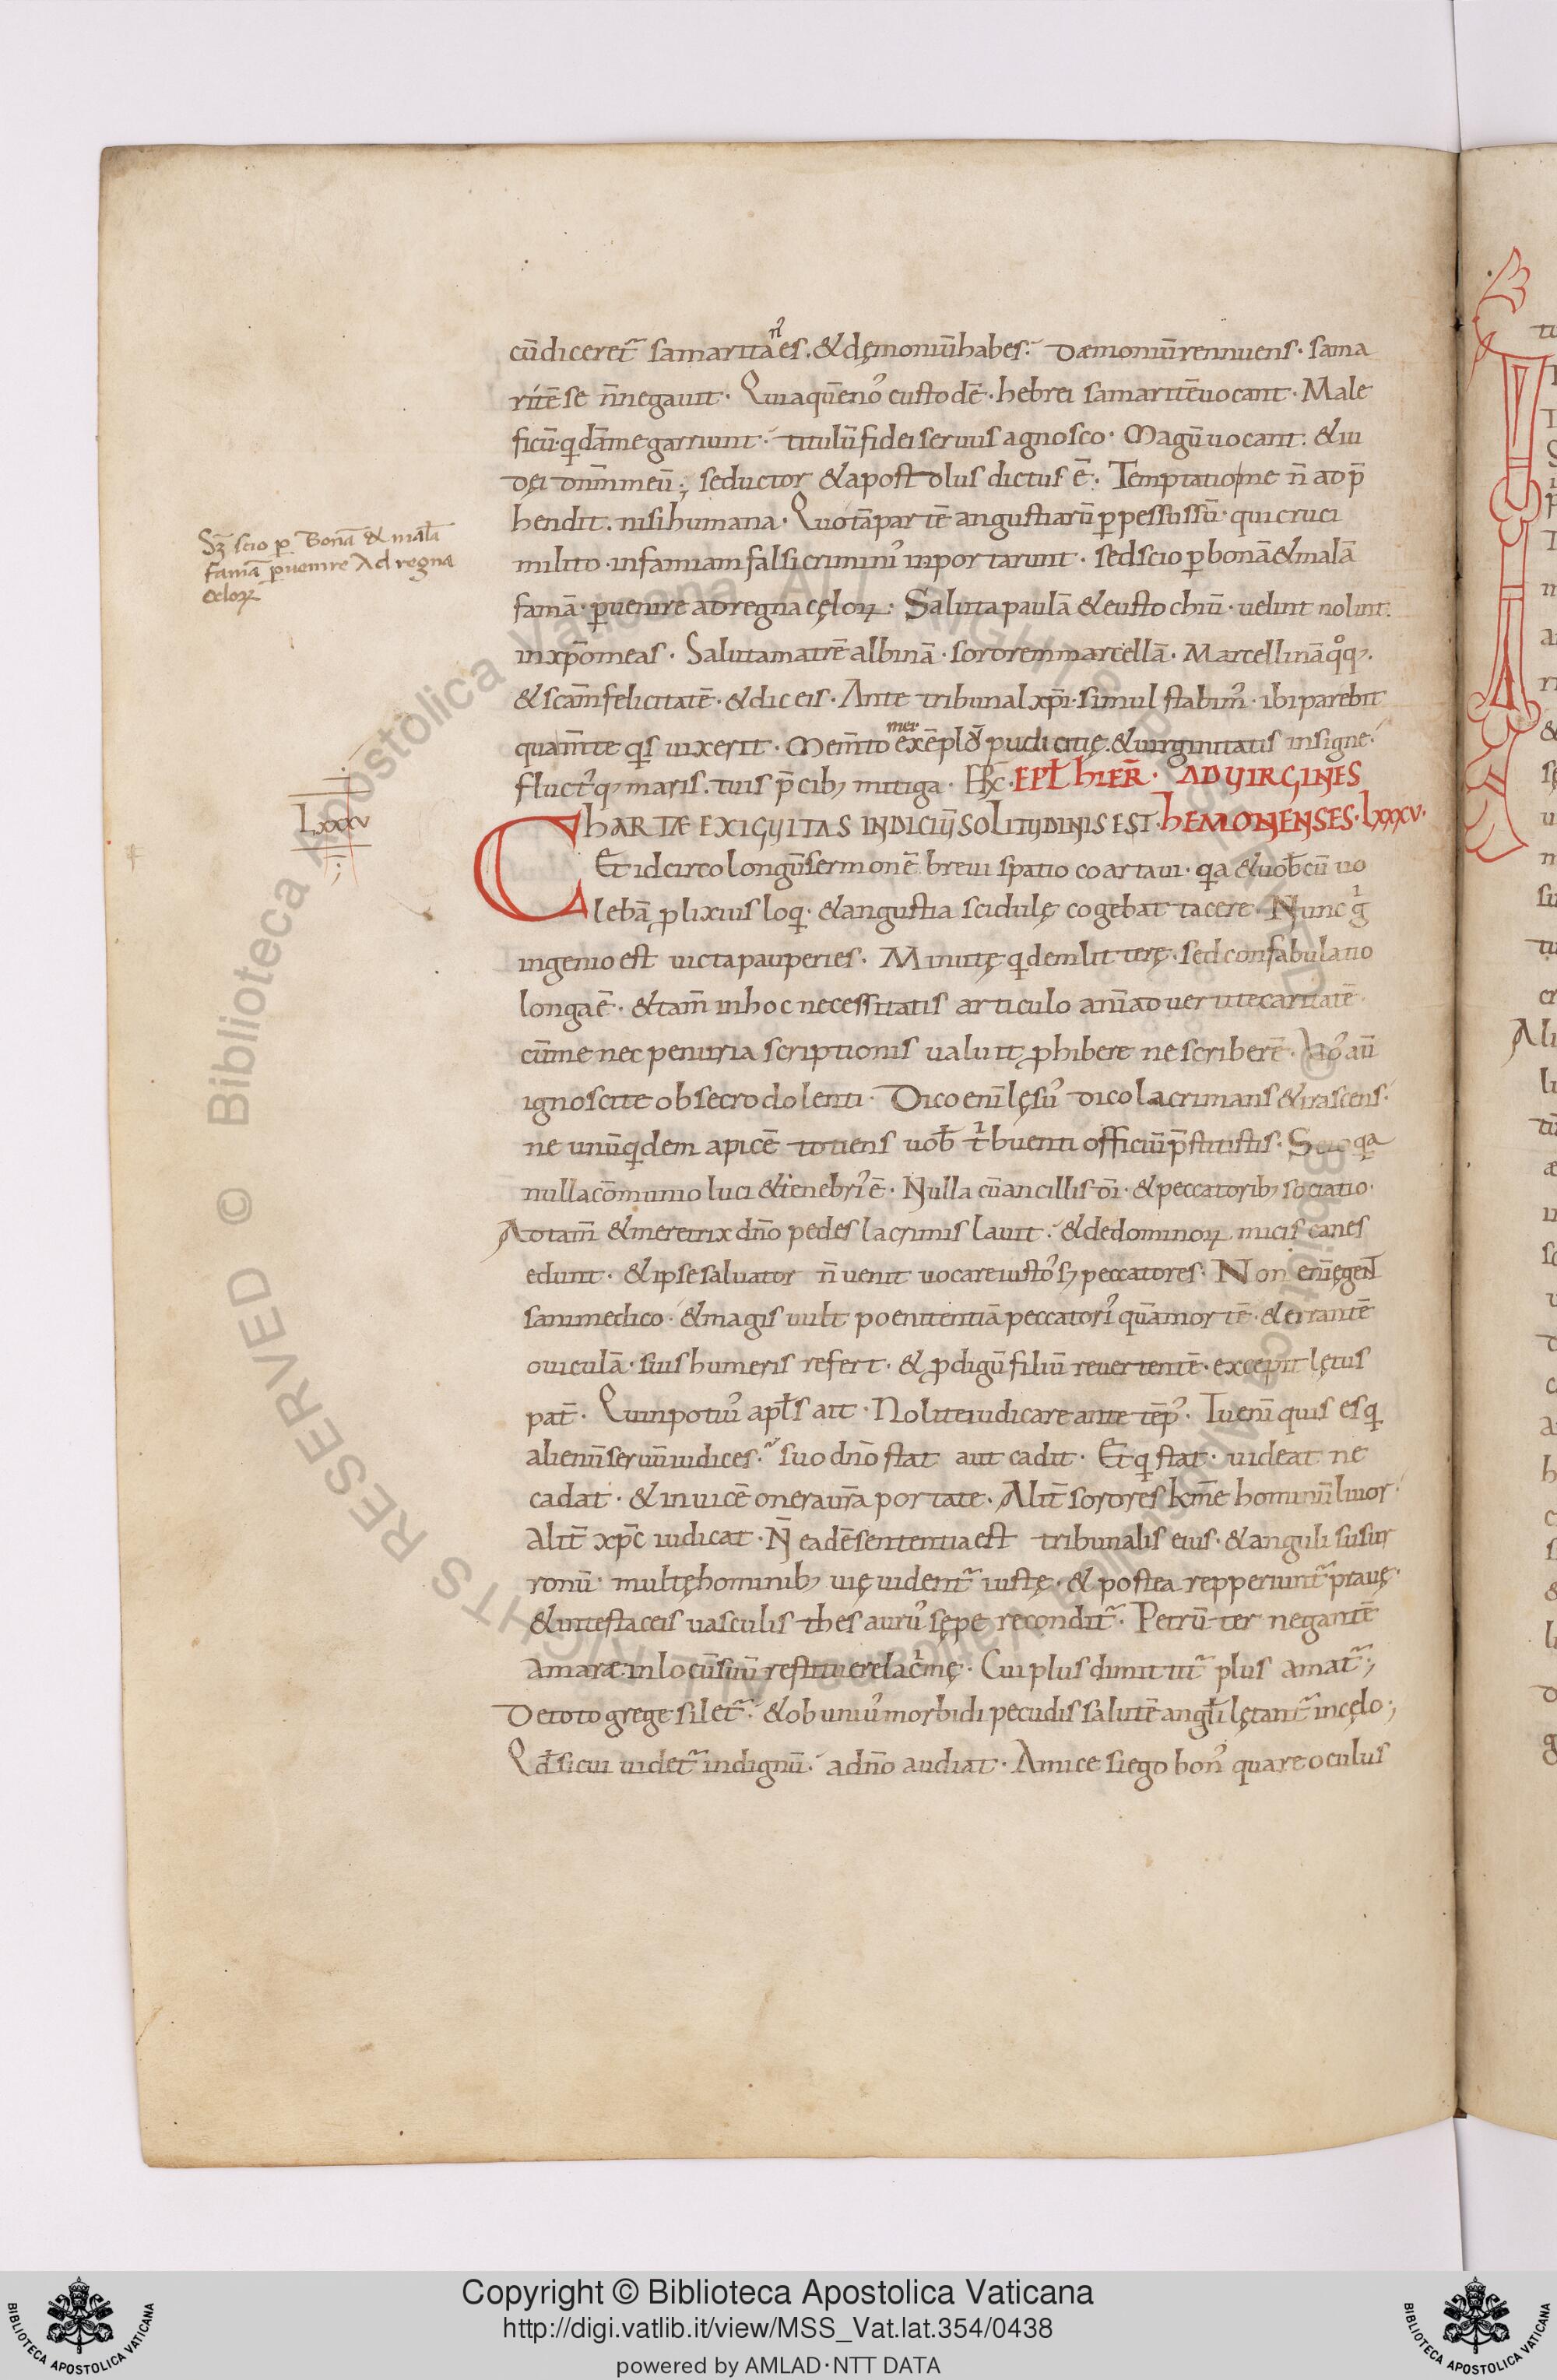 cū diceret᷑ samarita es. & dęmoniū habes. Dæmoniū rennuens. sama
ritē se n̄ negauit. Quia quē noꝰ custodē. hebrei samaritē uocant. Male
ficū. qdā me garriunt. titulū fidei seruus agnosco. Magū uocant. & iu
dęi dn̄m meū; seductor & apostolus dictus ē. Temptatio me n̄ adp̄
hendit. nisi humana. Quotā partē angustiarū ꝑpessus sū. qui cruci
milito. infamiam falsi criminiꝰ inportarunt. sed scio ꝑ bonā & malā
Sꝫ scio ꝑ Bonā & malā
famā ꝑuenire Ad regna
cęloꝝ
famā. ꝑuenire ad regna cęloꝝ. Saluta paulā & eustochiū. uelint nolint.
in xp̄o meas. Saluta matrē albinā. sororem marcellā. Marcellinā qͦqꝫ.
& sc̄am felicitatē. & dic eis. Ante tribunal xp̄i. simul stabimꝰ. ibi parebit
qua m̄te qs uixerit. Mem̄to mei exēplū pudicitię. & uirginitatis insigne.
fluctꝰqꝫ maris. tuis p̄cibꝫ mitiga. EPŁ hIER̄. AD VIRGINES
Lxxxv
ChARTÆ EXIGVITAS INDICIŪ SOLITVDINIS EST. hEMONENSES. LXXXV.
Et idcirco longū sermonē breui spatio coartaui. qa & uob̄cū uo
lebā ꝓlixius loq. & angustia scidulę cogebat tacere. Nunc gͥ
ingenio est uicta pauperies. Minutę qdem litterę. sed confabulatio
longa ē. & tam̄ in hoc necessitatis articulo anīaduertite caritatē.
cū me nec penuria scriptionis ualuit ꝓhibere ne scriberē. Uoꝰ aū
ignoscite obsecro dolenti. Dico enī lęsuꝰ dico lacrimans & irascens.
ne unū qdem apicē totiens uob̄ tͥbuenti officiū p̄stitistis. Scio qa
nulla cōmunio luci & tenebriꝰ ē. Nulla cū ancillis dī. & peccatoribꝫ sociatio.
Adtam̄ & meretrix dn̄o pedes lacrimis lauit. & de dominoꝝ micis canes
edunt. & ipse saluator n̄ uenit uocare iustoꝰ sꝫ peccatores. Non enī egent
sani medico. & magis uult poenitentiā peccatoriꝰ quā mortē. & errantē
ouiculā. suis humeris refert. & ꝓdigū filiū reuertentē. excepit lętus
pat̄. Quin potiuꝰ apłs ait. Nolite iudicare ante tēpꝰ. Tu enī quis es q
alienū seruū iudices. suo dn̄o stat aut cadit. Et q stat. uideat ne
cadat. & inuicē onera ur̄a portate. Alit̄ sorores km̄e hominū liuor.
Alit̄ xp̄c iudicat. N̄ eadē sententia est tribunalis eius. & anguli susur
ronū. multę hominibꝫ uię uident᷑ iustę. & postea repperiunt᷑ prauę.
& in testaceis uasculis thesauruꝰ sępe recondit᷑. Petrū ter negantē
amaræ in locū suū restituere lacͥmę. Cui plus dimittit᷑ plus amat᷑;
De toto grege silet᷑. & ob uniuꝰ morbidi pecudis salutē angłi lętant᷑ in cęlo;
Qđ si cui uidet᷑ indignū. a dn̄o audiat. Amice si ego bonꝰ quare oculus
Copyright © Biblioteca Apostolica Vaticana
http://digi.vatlib.it/view/MSS_Vat.lat.354/0438
powered by AMLAD·NTT DATA